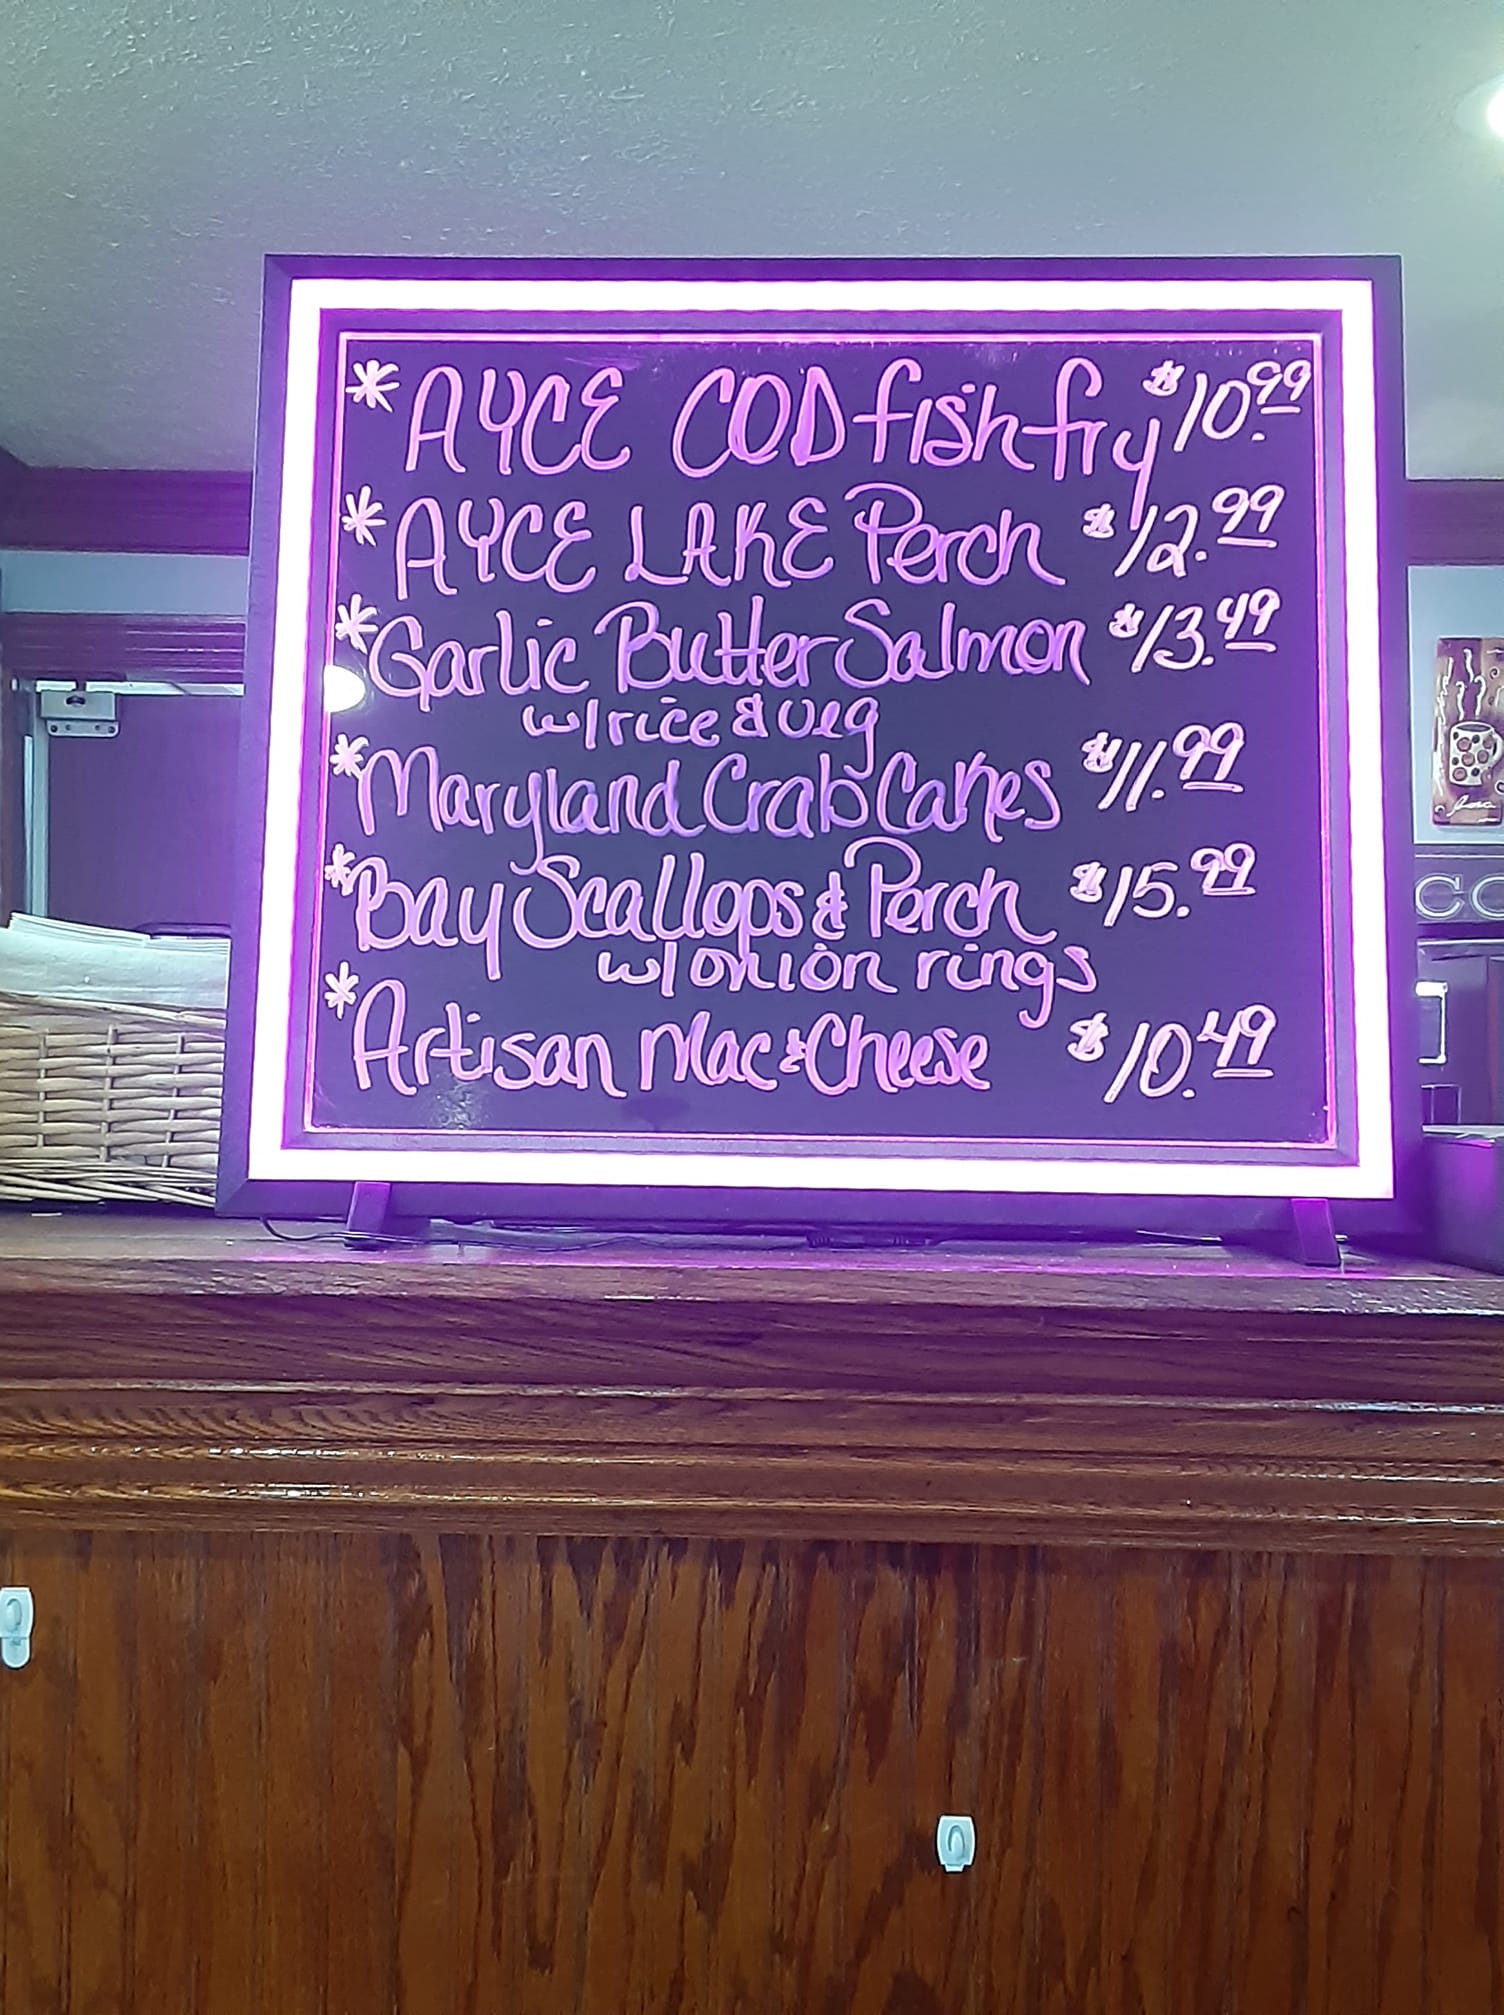 * AYCE COD fish fry $10.99
* AYCE LAKE Perch $12.99
* Garlic Butter Salmon $13.49
w/rice & veg
* Maryland Crab Cakes $11.99
* Bay Scallops & Perch $15.99
w/onion rings
* Artisan Mac & Cheese $10.49
CO